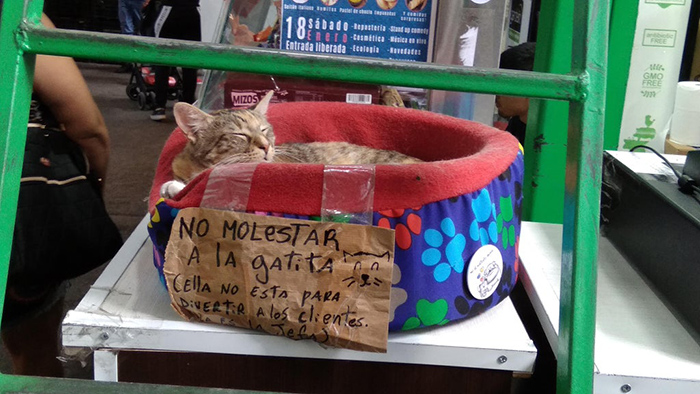 18 SÁBADO
Enero
Entrada liberada
Repostería - Stand up comedy
Cosmética - Música en vivo
Ecología - Novedades
MIZOS
antibiotic
FREE
GMO
FREE
NO MOLESTAR
A la gatita
(ella no esta para
Divertir a los clientes.
es la Jefa)